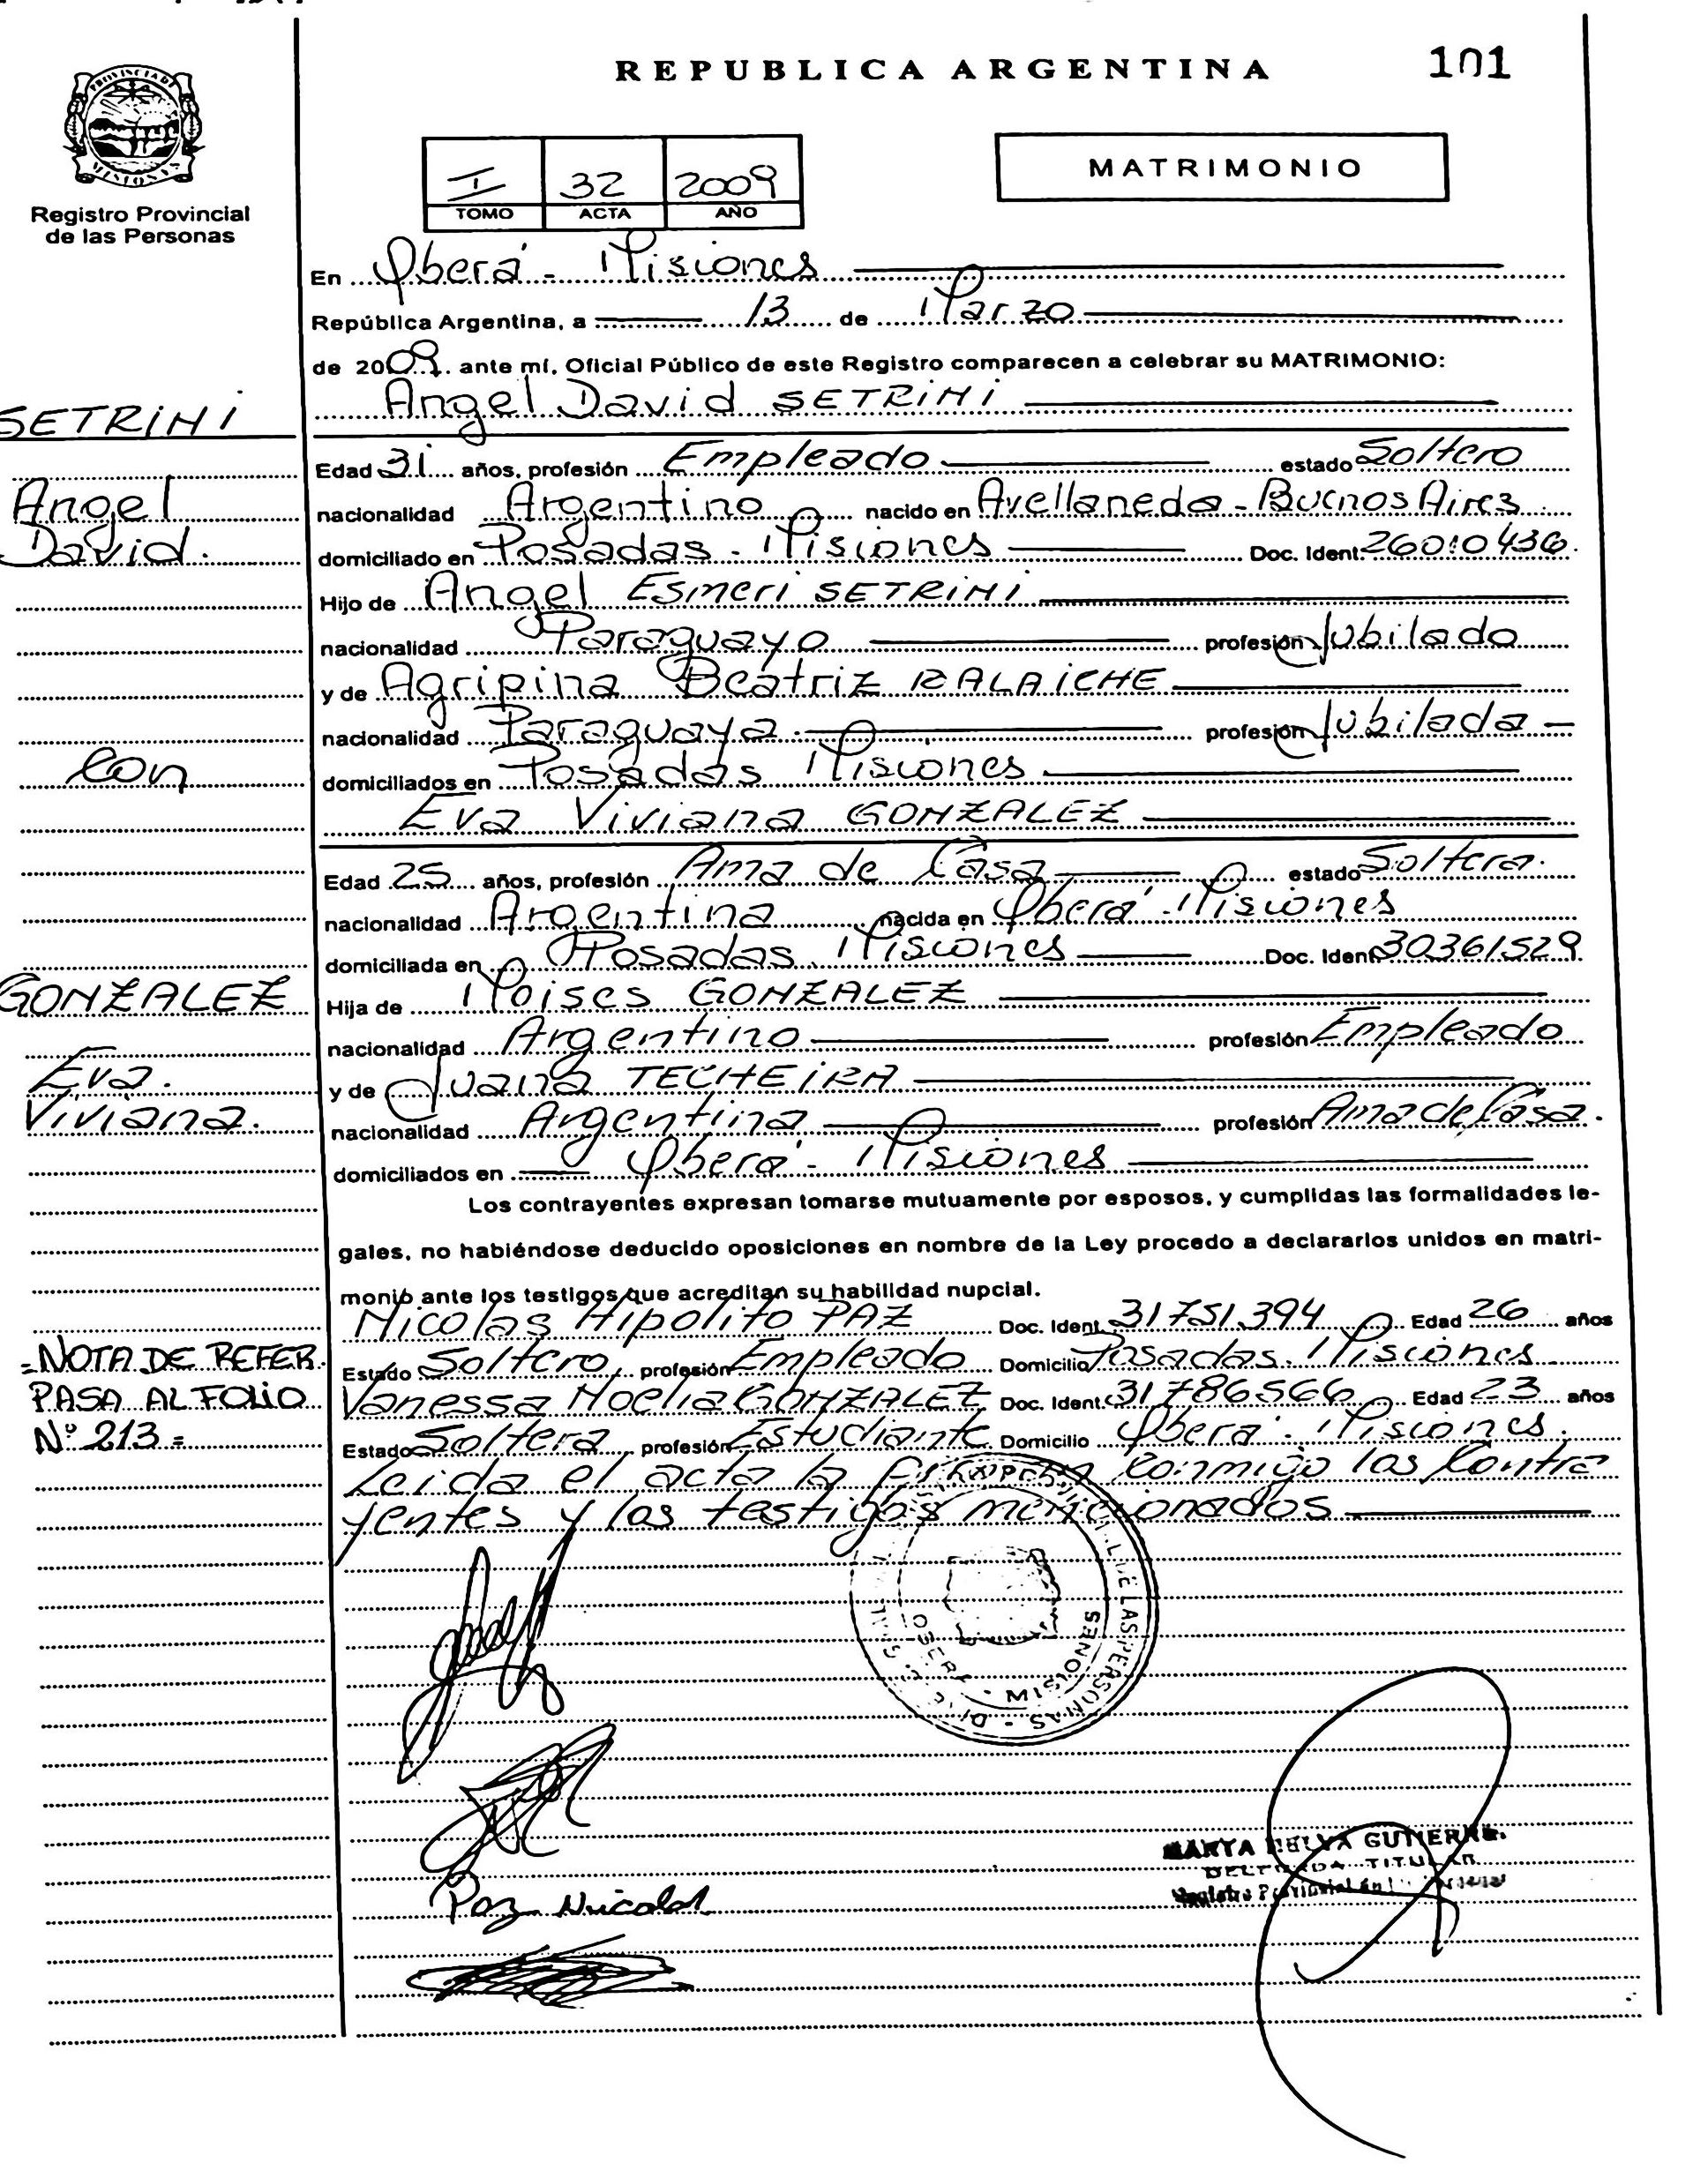 REPUBLICA ARGENTINA
101
PROVINCIA DE MISIONES
Registro Provincial
de las Personas
I 32 2009
TOMO ACTA AÑO
MATRIMONIO
En Oberá - Misiones
República Argentina, a 13 de Marzo
de 2009. ante mí, Oficial Público de este Registro comparecen a celebrar su MATRIMONIO:
Angel David SETRINI
SETRINI
Edad 31 años, profesión Empleado estado Soltero
Angel
nacionalidad Argentino nacido en Avellaneda - Buenos Aires
David.
domiciliado en Posadas - Misiones Doc. Ident. 26010436.
Hijo de Angel Esmeri SETRINI
nacionalidad Paraguayo profesión Jubilado
y de Agripina Beatriz RALAICHE
nacionalidad Paraguaya profesión Jubilada
Con
domiciliados en Posadas Misiones
Eva Viviana GONZALEZ
Edad 25 años, profesión Ama de Casa estado Soltera.
nacionalidad Argentina nacida en Oberá - Misiones
domiciliada en Posadas. Misiones Doc. Ident. 30361529
GONZALEZ
Hija de Moises GONZALEZ
nacionalidad Argentino profesión Empleado
Eva.
y de Juana TECHEIRA
Viviana.
nacionalidad Argentina profesión Ama de Casa.
domiciliados en Oberá - Misiones
Los contrayentes expresan tomarse mutuamente por esposos, y cumplidas las formalidades le-
gales, no habiéndose deducido oposiciones en nombre de la Ley procedo a declararlos unidos en matri-
monio ante los testigos que acreditan su habilidad nupcial.
Nicolas Hipolito PAZ Doc. Ident. 31751.394 Edad 26 años
=NOTA DE REFER.
Estado Soltero profesión Empleado Domicilio Posadas. Misiones
PASA AL FOLIO
Vanessa Noelia GONZALEZ Doc. Ident. 31786566 Edad 23 años
Nº 213=
Estado Soltera profesión Estudiante Domicilio Oberá - Misiones.
Leida el acta la firman conmigo los Contra
yentes y los testigos mencionados
DE LAS PERSONAS
OBERA - MISIONES
MARTA GUTIERRE
TITULAR
Registro Provincial
Paz Nicolas